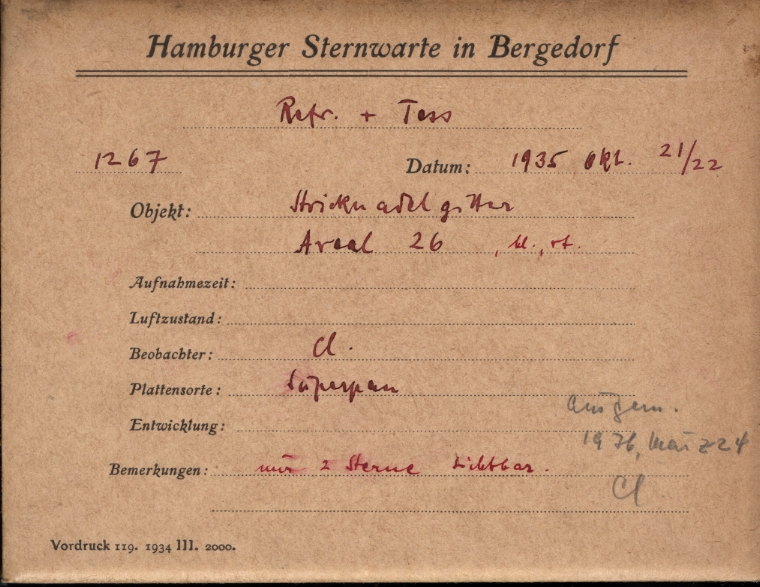 Hamburger Sternwarte in Bergedorf
Refr. + Tess
1267 Datum: 1935 Okt. 21/22
Objekt: Stricknadelgitter
Areal 26, bl., rt.
Aufnahmezeit:
Luftzustand:
Beobachter: Cl.
Plattensorte: Superpan
Entwicklung:
ausgem.
1976, März 24
Bemerkungen: nur 2 Sterne sichtbar.
Cl
Vordruck 119. 1934 III. 2000.